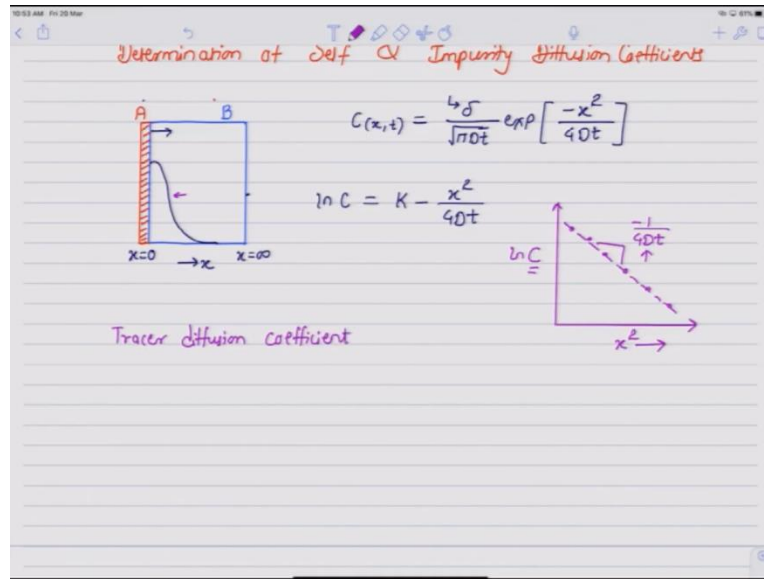 10:53 AM Fri 20 Mar 61%
Determination of Self & Impurity Diffusion Coefficients
A B
C(x,t) = 4δ/√πDt exp[-x²/4Dt]
ln C = K - x²/4Dt
x=0 →x x=∞
-1/4Dt
ln C
x² →
Tracer diffusion coefficient